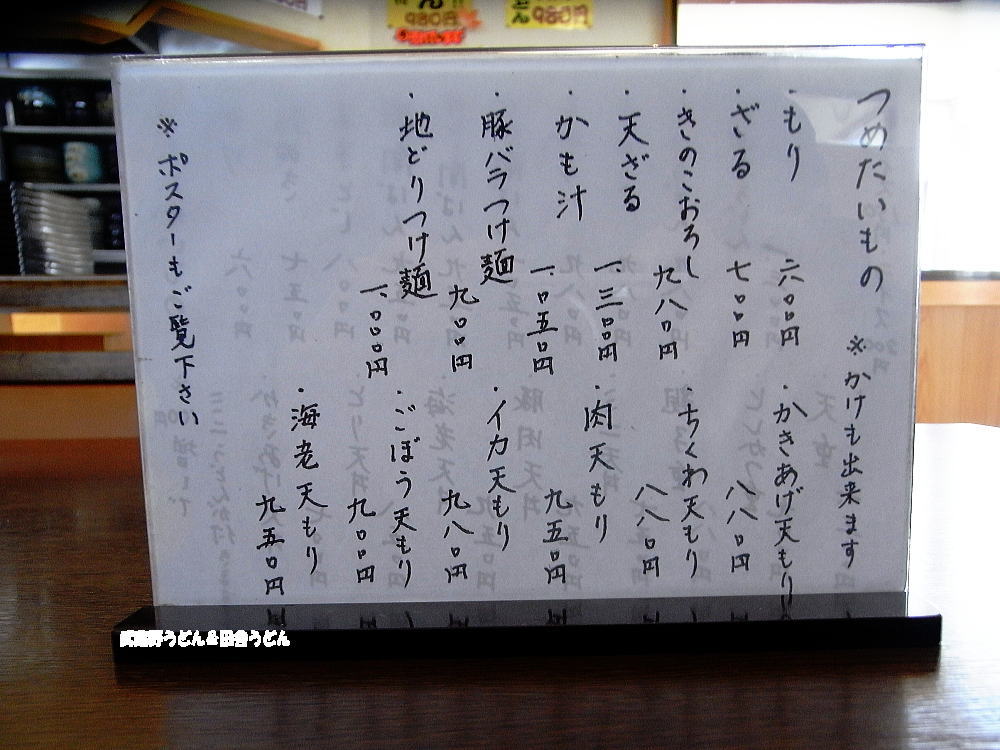 つめたいもの
・もり 六〇〇円
・ざる 七〇〇円
・きのこおろし 九八〇円
・天ざる 一、三〇〇円
・かも汁 一、〇五〇円
・豚バラつけ麺 九〇〇円
・地どりつけ麺 一、〇〇〇円
※ポスターもご覧下さい
※かけも出来ます
・かきあげ天もり 八八〇円
・ちくわ天もり 八八〇円
・肉天もり 九五〇円
・イカ天もり 九八〇円
・ごぼう天もり 九〇〇円
・海老天もり 九五〇円
980円
980円
武蔵野うどん&田舎うどん